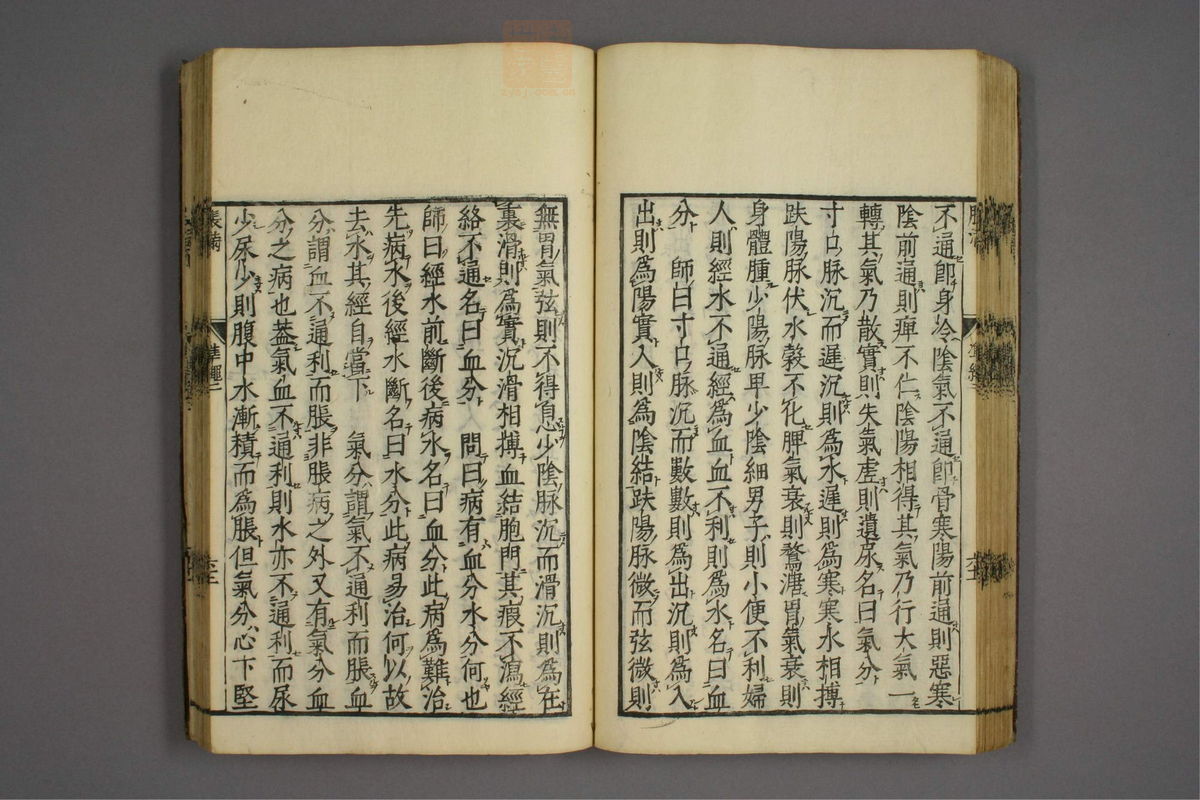 不通即身冷陰氣不通即骨寒陽前通則惡寒
陰前通則痺不仁陰陽相得其氣乃行大氣一
轉其氣乃散實則失氣虛則遺尿名曰氣分
寸口脉沉而遲沉則爲水遲則爲寒寒水相搏
趺陽脉伏水穀不化脾氣衰則鶩溏胃氣衰則
身體腫少陽脉卑少陰細男子則小便不利婦
人則經水不通經爲血血不利則爲水名曰血
分 師曰寸口脉沉而數數則爲出沉則爲入
出則爲陽實入則爲陰結趺陽脉微而弦微則
無胃氣弦則不得息少陰脉沉而滑沉則爲在
裏滑則爲實沉滑相搏血結胞門其瘕不瀉經
絡不通名曰血分 問曰病有血分水分何也
師曰經水前斷後病水名曰血分此病爲難治
先病水後經水斷名曰水分此病易治何以故
去水其經自當下 氣分謂氣不通利而脹血
分謂血不通利而脹非脹病之外又有氣分血
分之病也葢氣血不通利則水亦不通利而尿
少尿少則腹中水漸積而爲脹但氣分心下堅
脹滿
準繩二